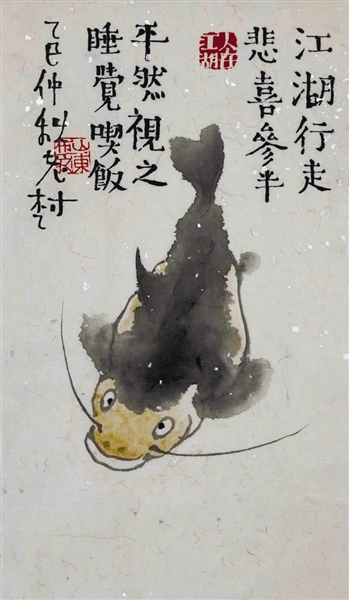 江湖行走
悲喜參半
平然視之
睡覺喫飯
乙巳仲秋老村
人在江湖
山東